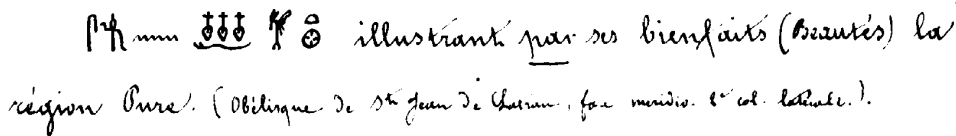 illustrant par ses bienfaits (Beautés) la
région Pure. (Obélisque de St Jean de Latran, face méridio. 2e col. latérale.).